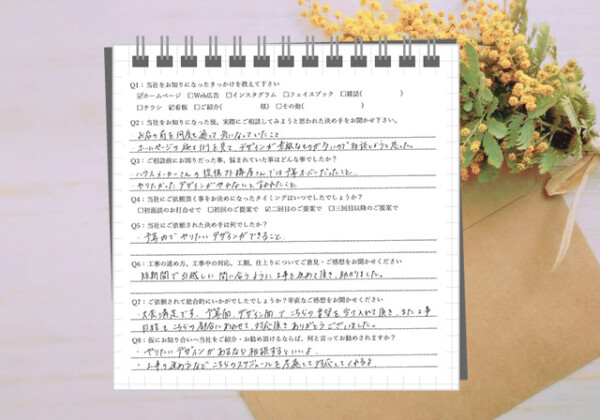 Q1：当社をお知りになったきっかけを教えて下さい
☑ホームページ □Web広告 □インスタグラム □フェイスブック □雑誌( )
□チラシ ☑看板 □ご紹介( 様) □その他( )
Q2：当社をお知りになった後、実際にご相談してみようと思われた決め手をお聞かせ下さい。
・お店の前を何度も通って気になっていたこと。
・ホームページの施工例を見て、デザインが素敵なものが多いので相談しようと思った。
Q3：ご相談前にお困りだった事、悩まれていた事はどんな事でしたか？
・ハウスメーカーさんの提携外構屋さんでは予算オーバーだったこと。
・やりたかったデザインがやれないと言われたこと。
Q4：当社にご依頼頂く事をお決めになったタイミングはいつでしたでしょうか？
□初面談のお打合せで □初回のご提案で ☑二回目のご提案で □三回目以降のご提案で
Q5：当社にご依頼された決め手は何でしたか？
・予算内でやりたいデザインができること。
Q6：工事の進め方、工事中の対応、工期、仕上りについてご意見・ご感想をお聞かせください
短期間で引越しに間に合うように工事を進めて頂き、助かりました。
Q7：ご依頼されて総合的にいかがでしたでしょうか？率直なご感想をお聞かせください
・大変満足です。予算面、デザイン面でこちらの希望を守り入れて頂き、また工事
日程もこちらの都合にあわせて、対応頂きありがとうございました。
Q8：仮にお知り合いへ当社をご紹介・お勧め頂けるならば、何と言ってお勧めされますか？
・やりたいデザインがあるなら相談するといいよ。
・工事の進め方などこちらのスケジュールを考慮して対応してくれるよ。